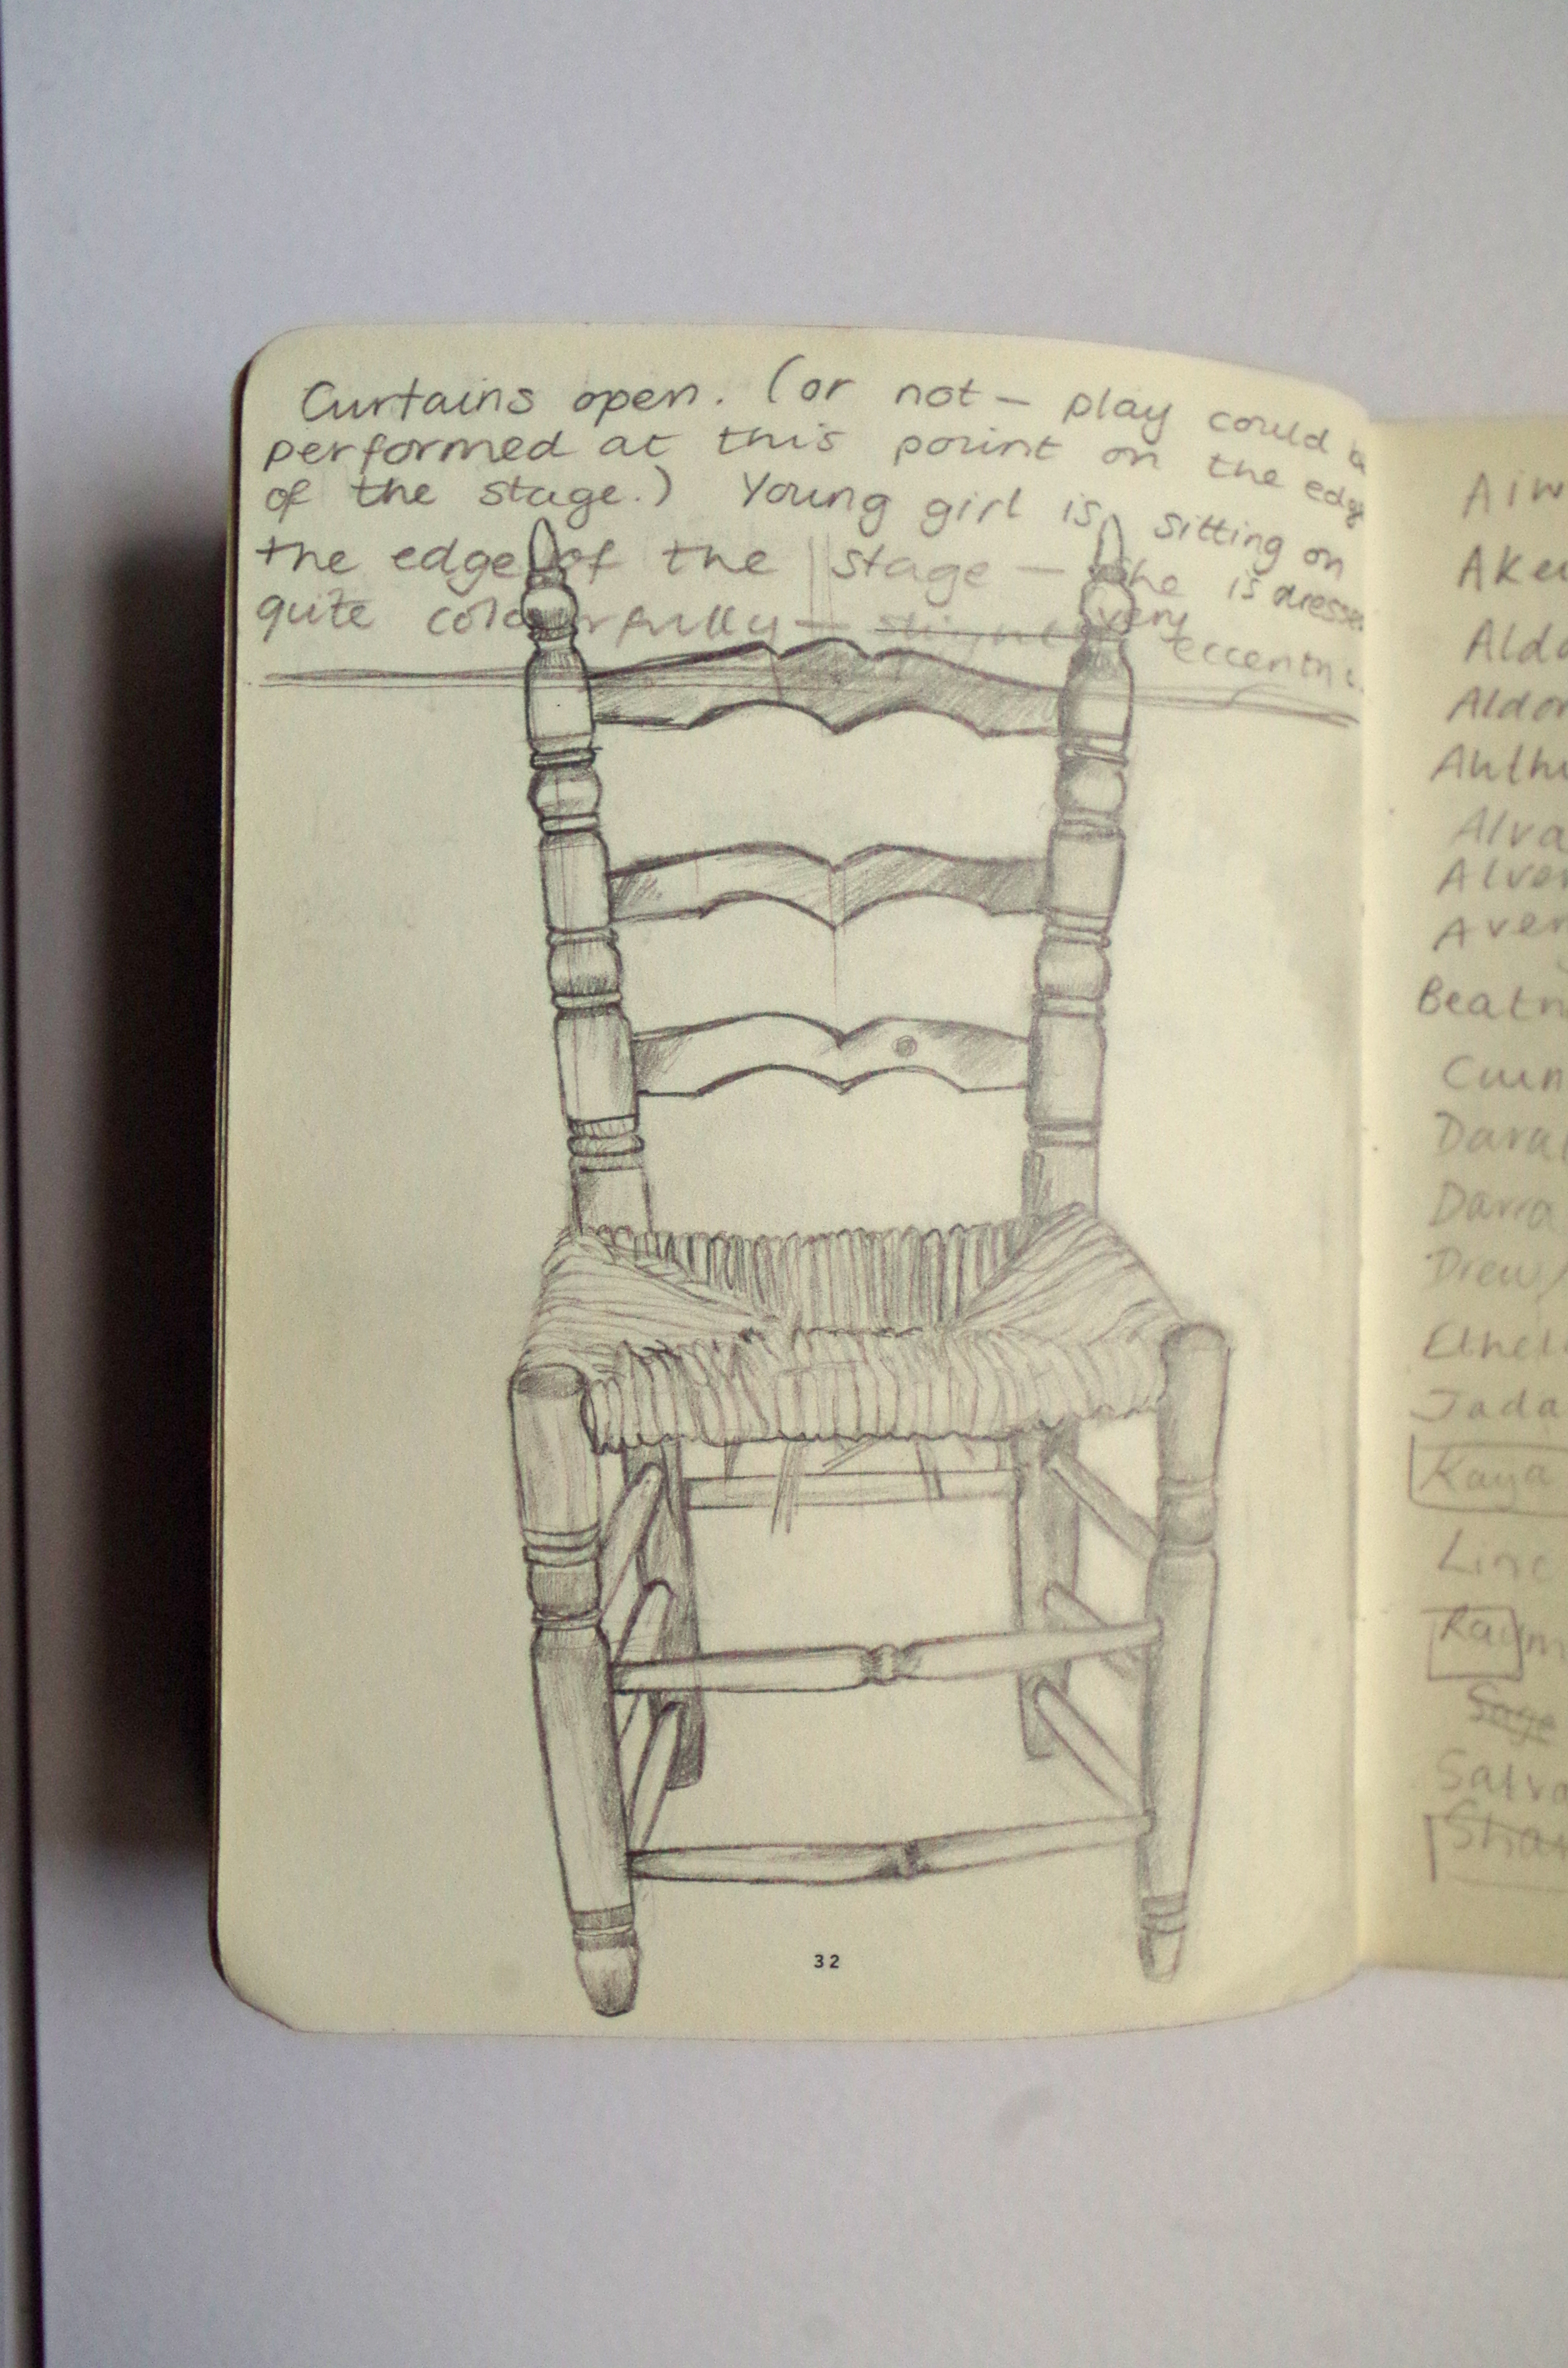 Curtains open. (or not – play could be
performed at this point on the edge
of the stage.) Young girl is sitting on
the edge of the stage – She is dressed
quite colourfully – slightly very
eccentric
32
Aiw
Ake
Aldo
Aldor
Alva
Alver
Aver
Beatr
Dara
Darra
Drew/
Ethel
Jada
Kaya
Liric
Raym
Sage
Salva
Shar